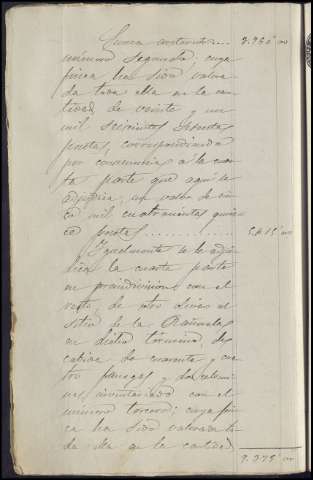 Suma anterior.... 3.960' 00
número segundo; cuya
finca ha sido valora-
da toda ella en la can-
tidad de veinte y un
mil seiscientas sesenta
pesetas, correspondiendo
por consecuencia a la cuar-
ta parte que aqui se
adjudica, un valor de cin-
co mil cuatrocientas quin-
ce pesetas ............ 5.415' 00
Igualmente se le adju-
dica la cuarta parte
en proindivision con el
resto, de otro olivar al
sitio de la Rañuela
en dicho termino, de
cabida de cuarenta y cua-
tro fanegas y dos celemi-
nes inventariado con el
número tercero; cuya fin-
ca ha sido valorada to-
da ella en la cantidad
9.375' 00